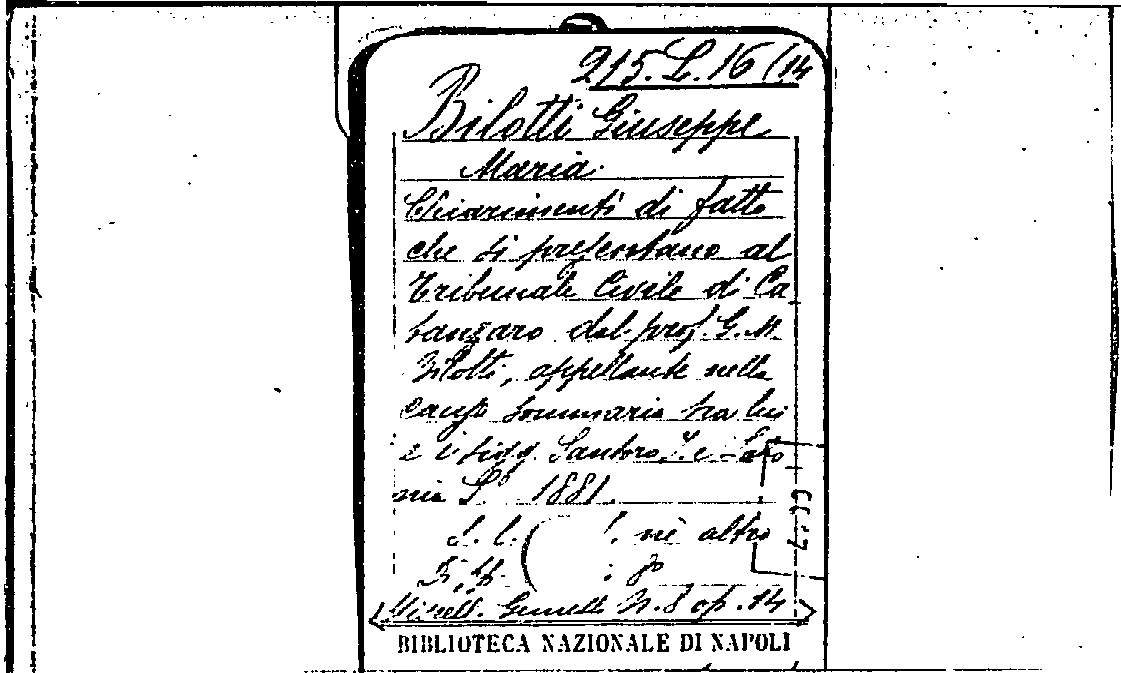 215. L. 16 (14
Bilotti Giuseppe
Maria.
Chiarimenti di fatto
che si presentano al
Tribunale Civile di Ca
tanzaro dal prof. G. M.
Bilotti, appellante nella
causa sommaria tra lui
e i sigg. Santoro, F. e
S. 1881.
S. l. né altro
8°
Miscell. B. 8 op. 14
BIBLIOTECA NAZIONALE DI NAPOLI